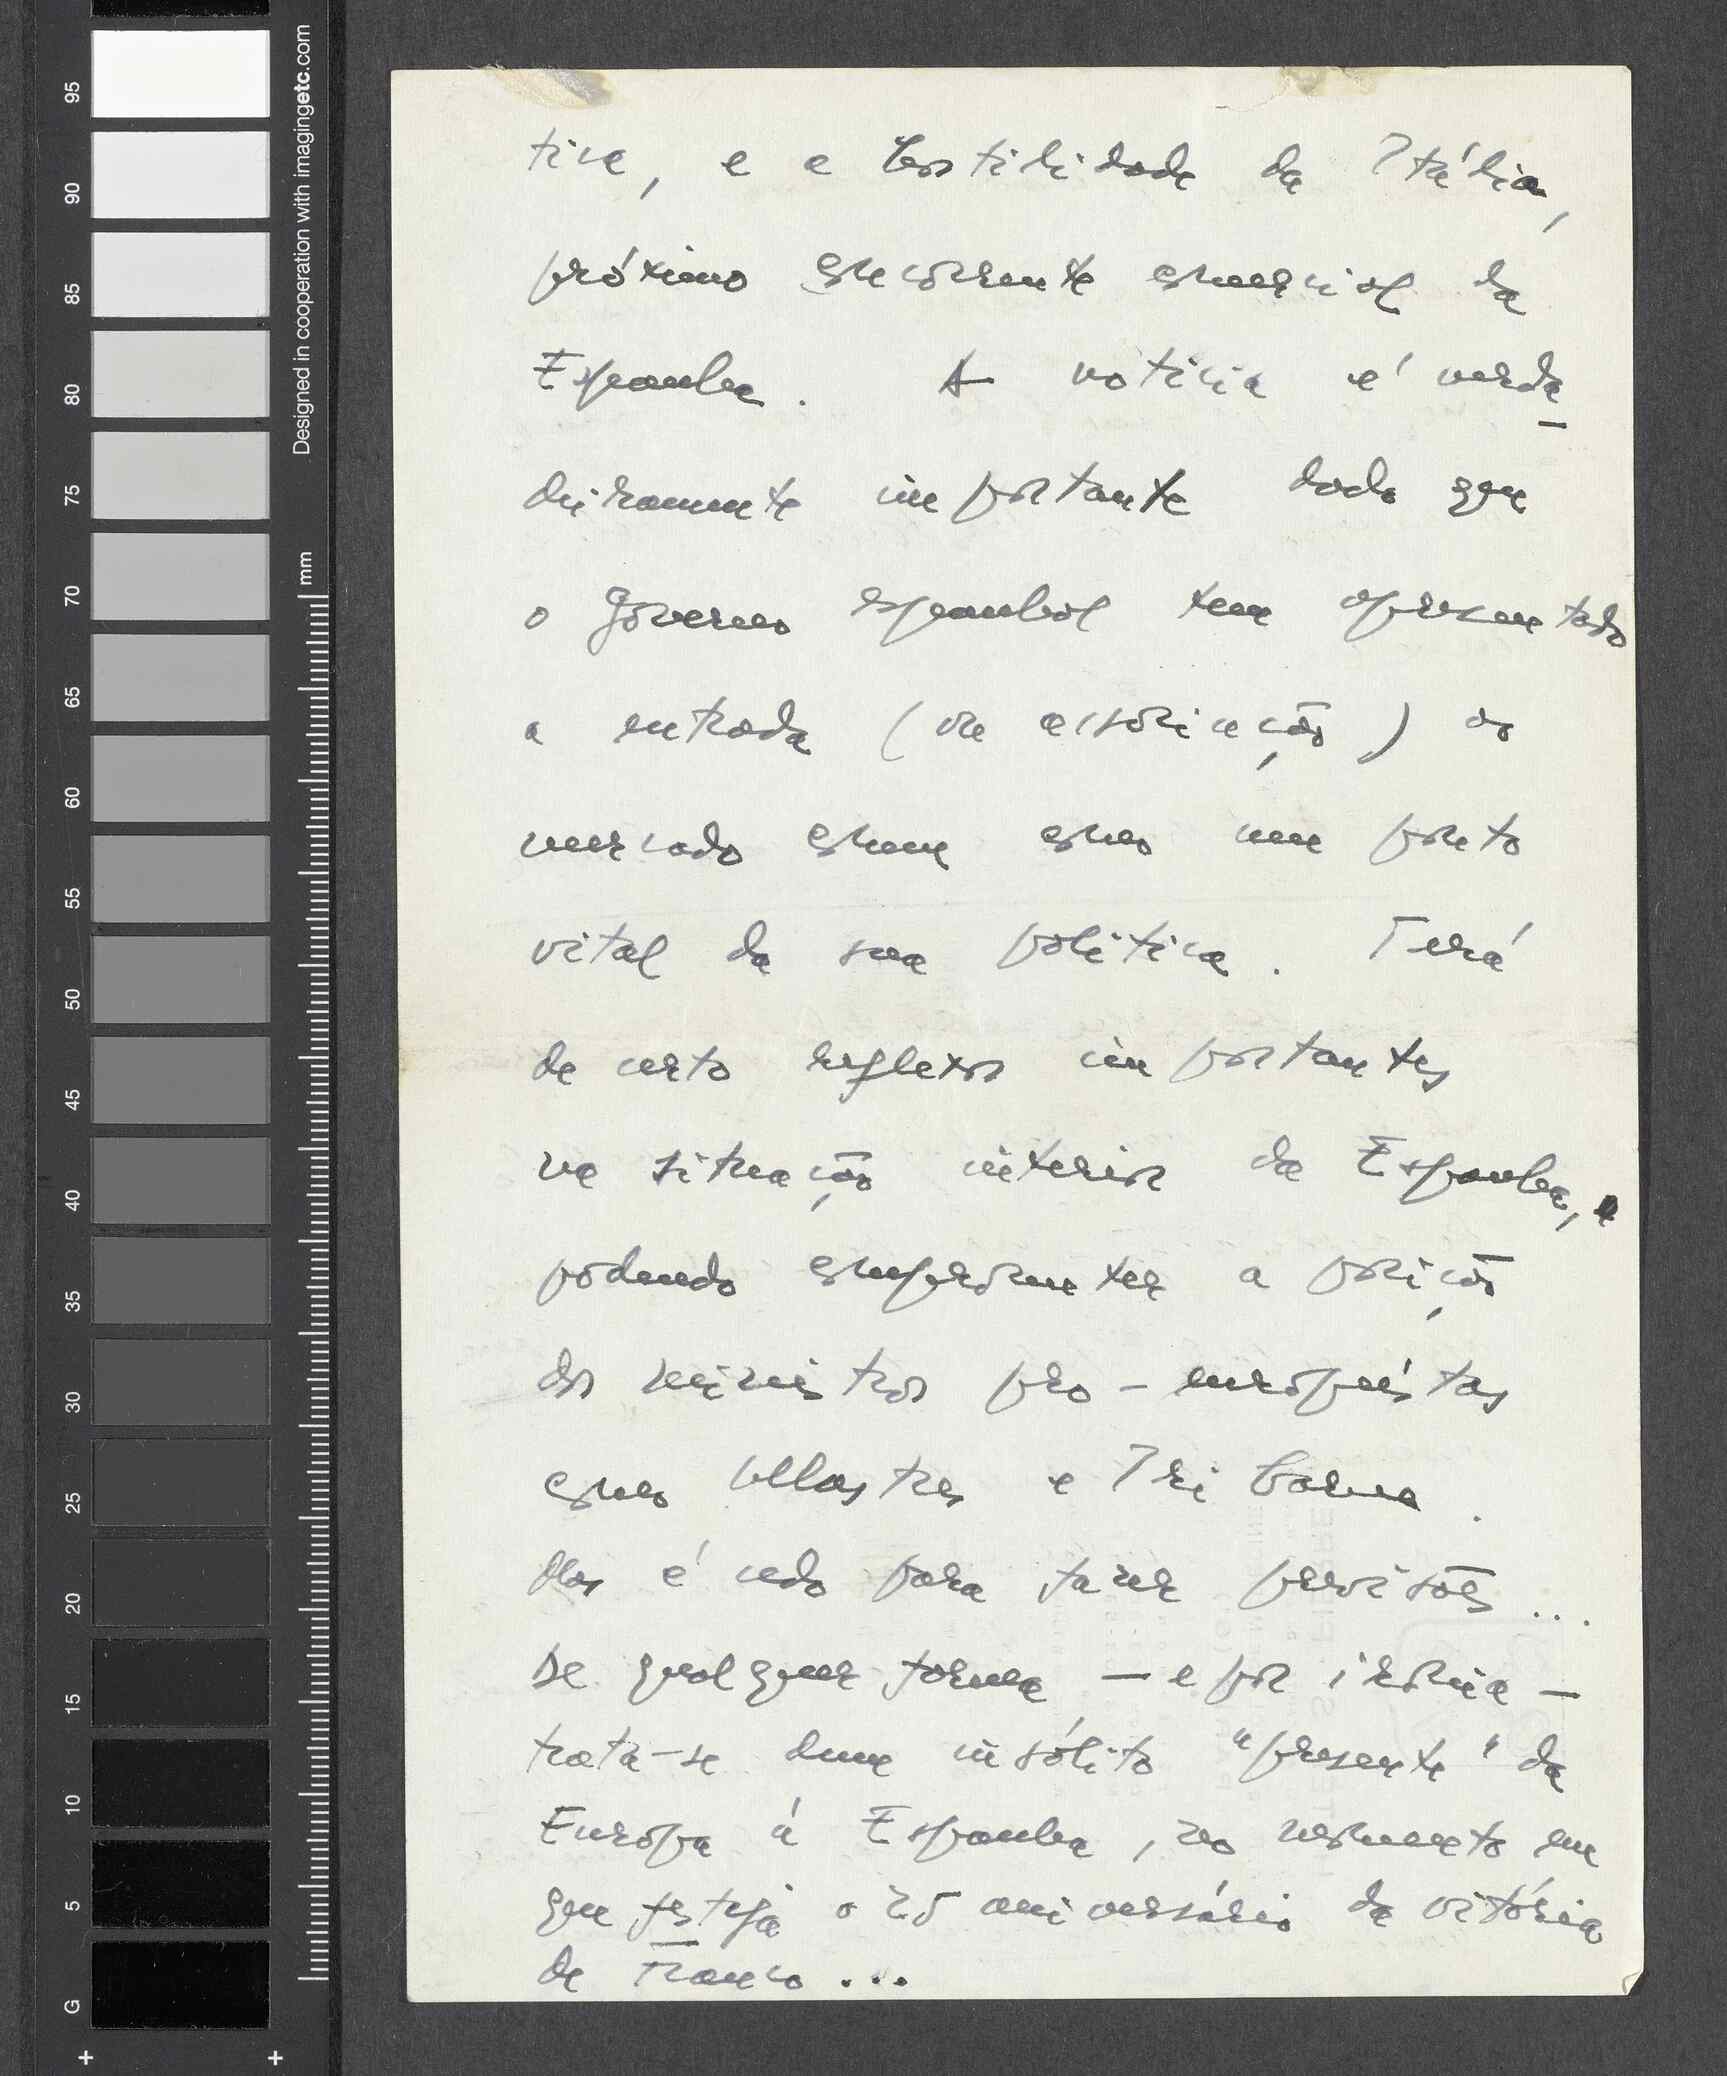 tiva, e a hostilidade da Itália,
próximo concorrente comercial da
Espanha. A notícia é verda-
deiramente importante dado que
o Governo espanhol tem apresentado
a entrada (ou associação) ao
mercado comum como um ponto
vital da sua política. Terá
de certo reflexos importantes
na situação interior da Espanha, e
podendo comprometer a posição
dos ministros pro-europeístas
como Ullastres e Iribarne.
Mas é cedo para fazer previsões...
De qualquer forma — e por ironia —
trata-se dum insólito "presente" da
Europa à Espanha, no momento em
que festeja o 25 aniversário da vitória
de Franco...
95
90
85
80
75
70
65
60
55
50
45
40
35
30
25
20
15
10
5
G
mm
Designed in cooperation with imagingetc.com